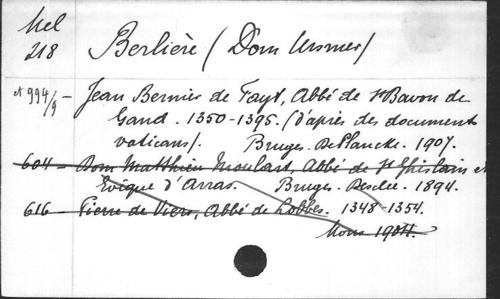 Mel
218
Berlière (Dom Ursmer)
et 994/9 - Jean Bernier de Fayt, Abbé de St Bavon de
Gand. 1350-1395. (d'après des documents
vaticans). Bruges. De Plancke. 1907.
604 - Dom Matthieu Moulart, Abbé de St Ghislain et
Evêque d'Arras. Bruges. Desclée. 1894.
616 - Pierre de Viers, Abbé de Lobbes. 1348-1354.
Mons 1904.